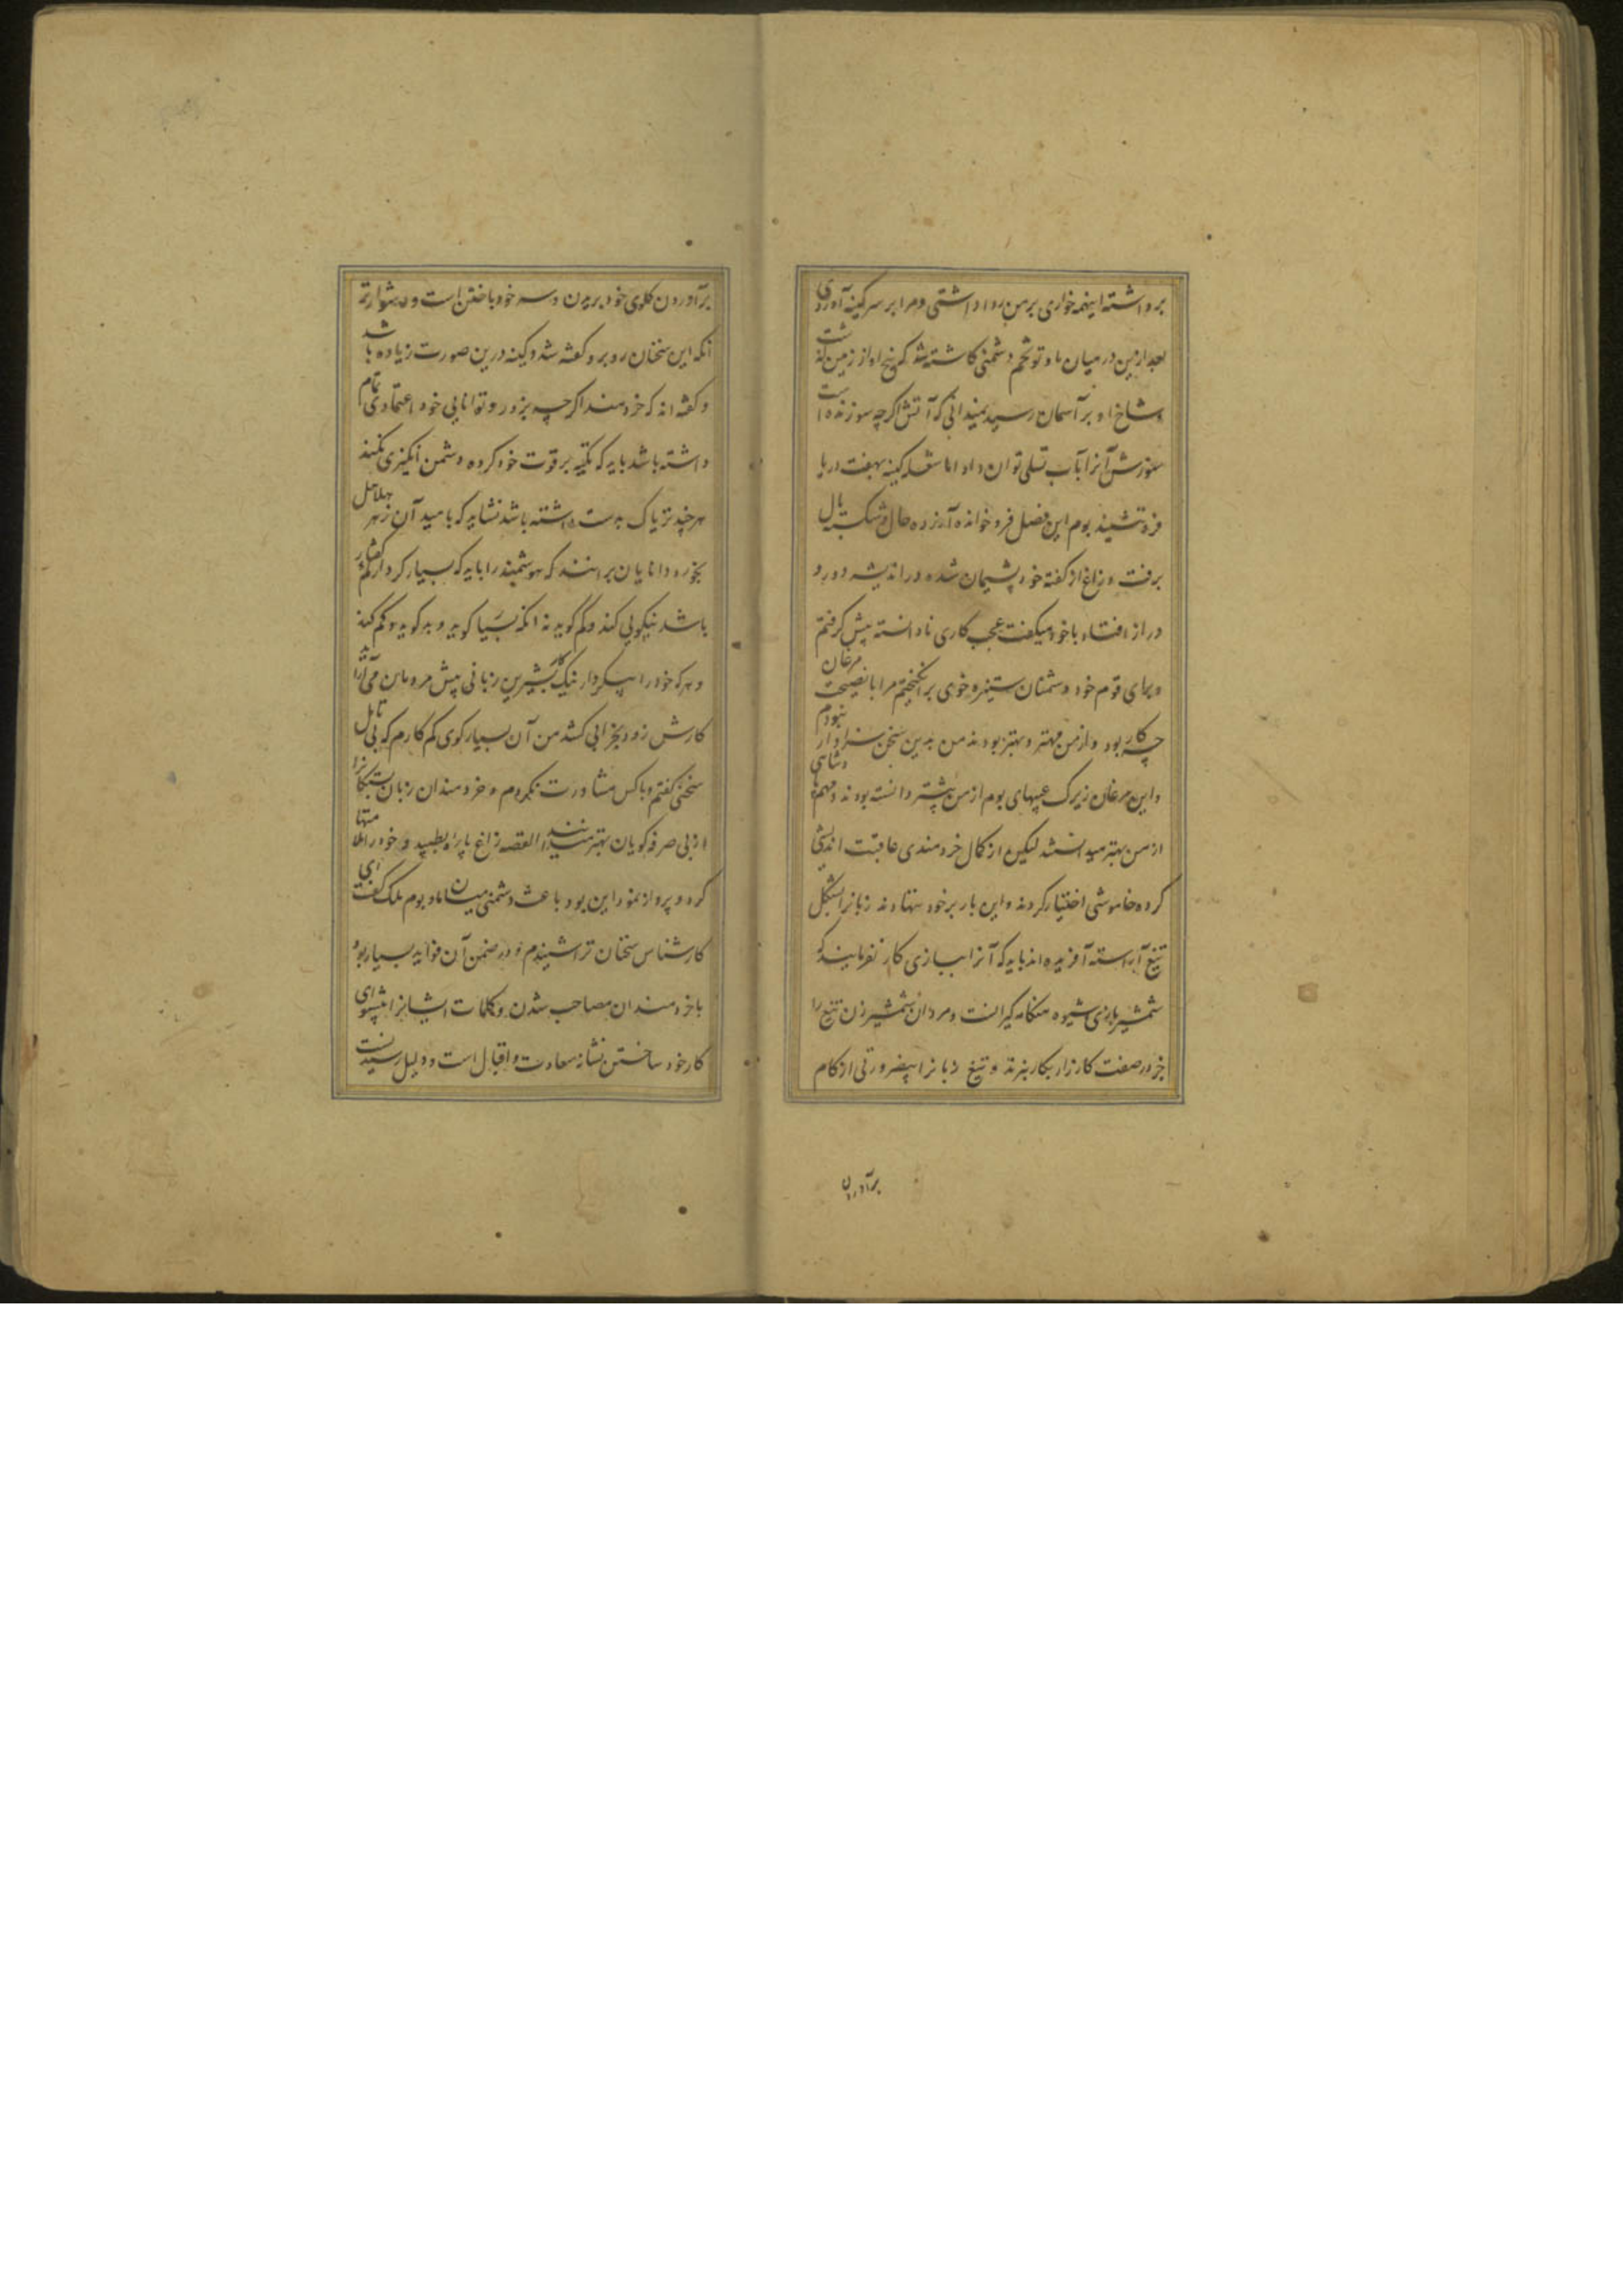 برداشته اینهمه خواری بر من روا داشتی و مرا بر سر کینه آوردی
بعد ازین در میان ما و تو تخم دشمنی کاشته شد که بیخ او از زمین گذشت
و شاخ او بر آسمان رسید نمیدانی که آتش اگرچه سوزنده است
سوزش آنرا بآب تسلی توان داد اما شعله کینه بهفت دریا
فرو ننشیند بوم این فصل فرو خوانده آزرده حال و شکسته بال
برفت و زاغ از گفته خود پشیمان شده در اندیشه دور و
دراز افتاد با خود میگفت عجب کاری نادانسته پیش گرفتم
و برای قوم خود دشمنان ستیزه خوی برانگیختم مرا با نصیحت مرغان
چه کار بود و از من مهتر و بهتر بودند من بدین سخن سزاوار نبودم
و این مرغان زیرک عیبهای بوم از من بیشتر دانسته بودند و مهم شاهی
از من بهتر میدانستند لیکن از کمال خردمندی عاقبت اندیشی
کرده خاموشی اختیار کردند و این بار بر خود ننهادند زبانرا بشکل
تیغ آراسته آفریده اند باید که آنرا ببازی کار نفرمایند که
شمشیر بازی شیوه هنگامه گیرانست و مردان شمشیر زن تیغ را
جز در صف کارزار بکار نبرند و تیغ زبانرا بیضرورتی از کام
برآوردن
برآوردن گلوی خود بریدن و سر خود باختن است و دشوارتر
آنکه این سخنان روبرو گفته شد و کینه درین صورت زیاده باشد
و گفته اند که خردمند اگرچه بزور و توانایی خود اعتمادی تمام
داشته باشد باید که تکیه بر قوت خود کرده دشمن انگیزی نکند
هر چند تریاک بدست داشته باشد نشاید که بامید آن زهر هلاهل
بخورد و دانایان برانند که هوشمند را باید که بسیار کردار کم گفتار
باشد نیکویی کند و کم گوید نه آنکه بسیار گوید و بد گوید و کم کند
و هر که خود را بیکردار نیک بشیرین زبانی پیش مردمان می آراید
کارش زود بخرابی کشد من آن بسیار گوی کم کارم که بی تامل
سخنی گفتم و با کس مشاورت نکردم و خردمندان زبان بستگانرا
از بی صرفه گویان بهتر میدانند القصه زاغ پاره بطپید و خود را ملامتها
کرد و پرواز نمود این بود باعث دشمنی میان ما و بوم ملک گفت ای
کارشناس سخنان ترا شنیدم و در ضمن آن فواید بسیار بود
با خردمندان مصاحب شدن و کلمات ایشانرا پیشوای
کار خود ساختن نشانه سعادت و اقبال است و دلیل رسیدنست